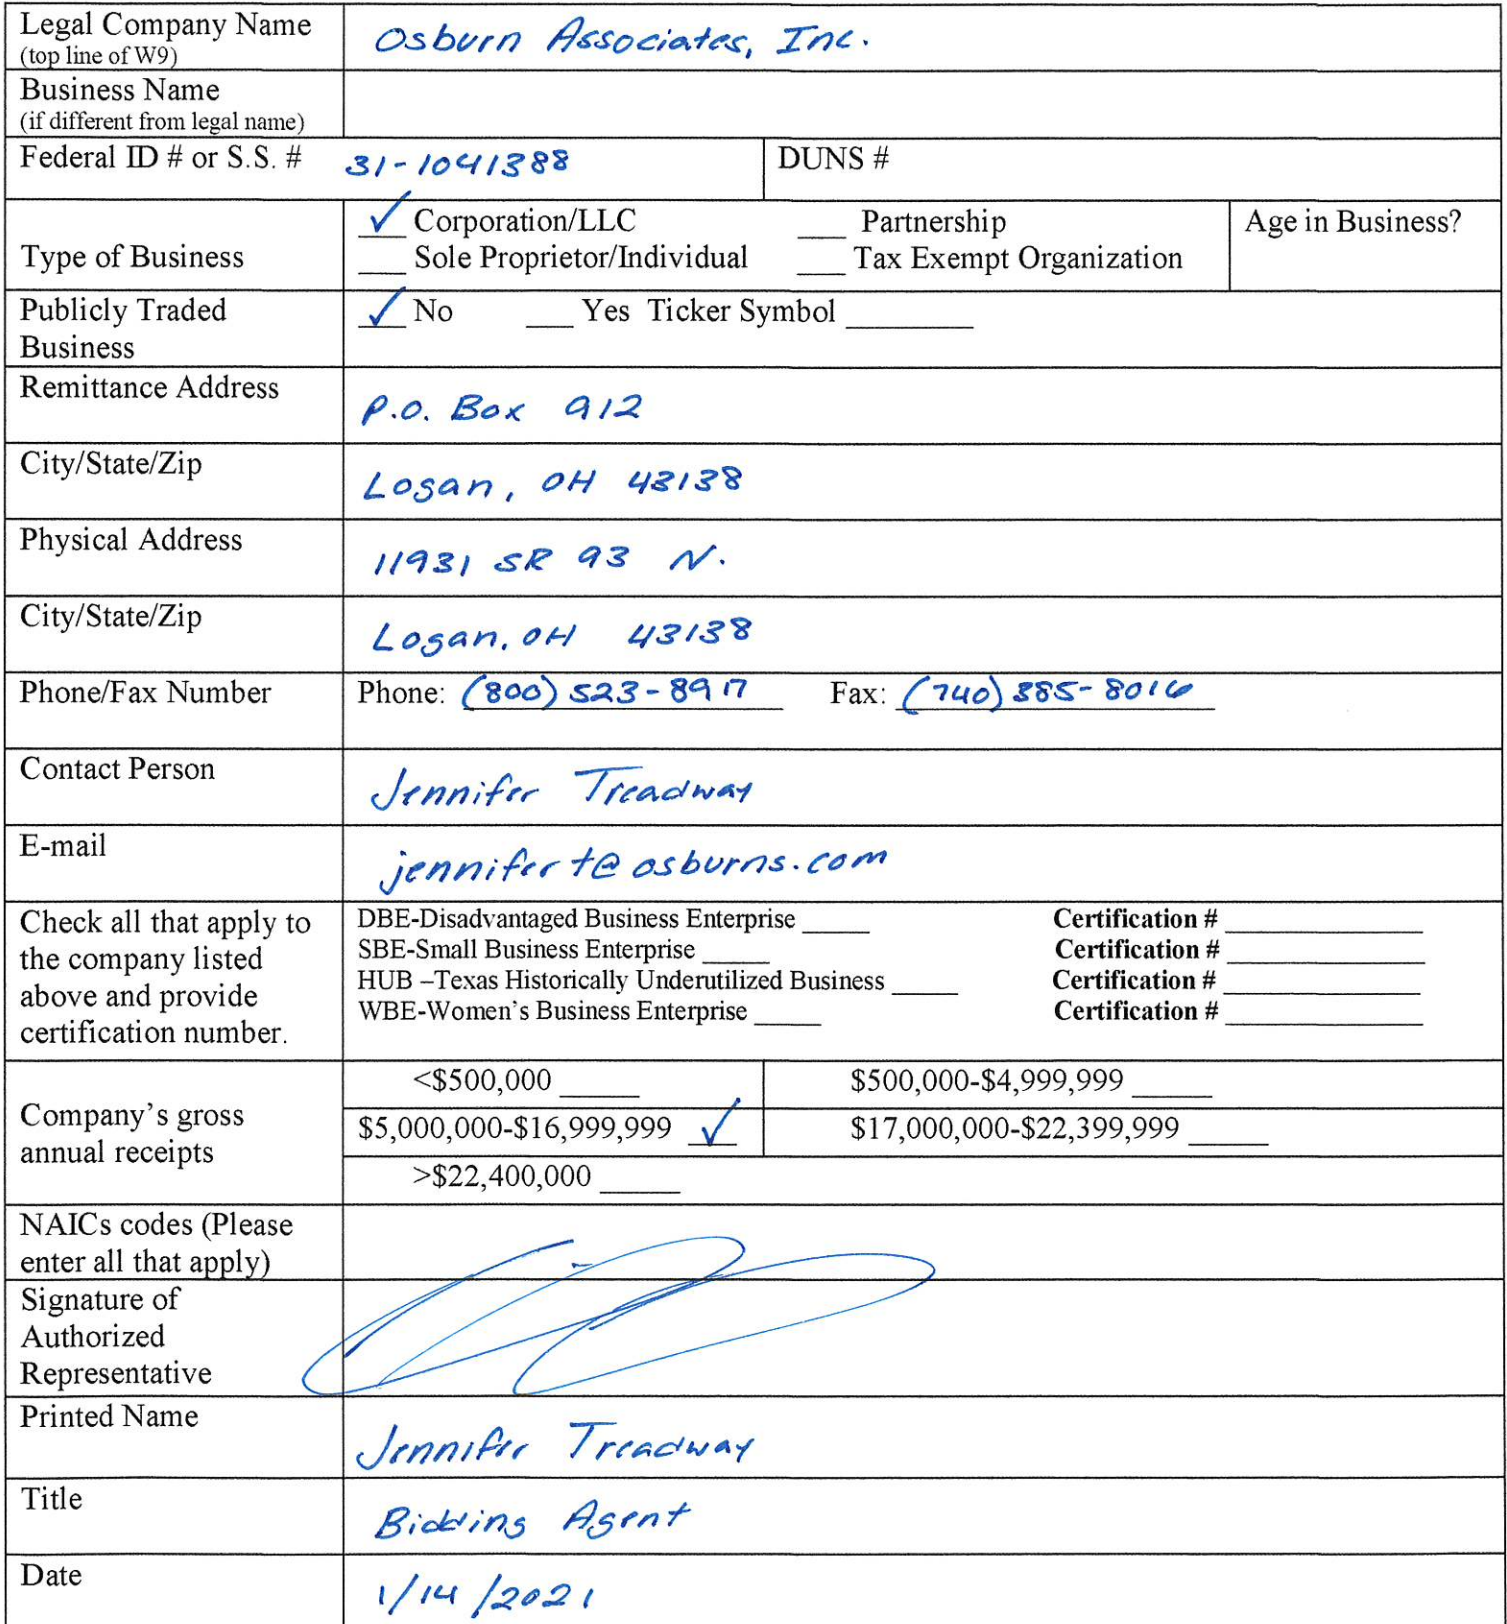 Legal Company Name
(top line of W9)
Osburn Associates, Inc.
Business Name
(if different from legal name)
Federal ID # or S.S. # 31-1041388 DUNS #
Type of Business
✓ Corporation/LLC ___ Partnership Age in Business?
___ Sole Proprietor/Individual ___ Tax Exempt Organization
Publicly Traded
Business
✓ No ___ Yes Ticker Symbol ________
Remittance Address
P.O. Box 912
City/State/Zip
Logan, OH 43138
Physical Address
11931 SR 93 N.
City/State/Zip
Logan, OH 43138
Phone/Fax Number Phone: (800) 523-8917 Fax: (740) 385-8016
Contact Person
Jennifer Treadway
E-mail
jennifert@osburns.com
Check all that apply to
the company listed
above and provide
certification number.
DBE-Disadvantaged Business Enterprise ____ Certification # ____________
SBE-Small Business Enterprise ____ Certification # ____________
HUB –Texas Historically Underutilized Business ____ Certification # ____________
WBE-Women's Business Enterprise ____ Certification # ____________
Company's gross
annual receipts
<$500,000 _____ $500,000-$4,999,999 _____
$5,000,000-$16,999,999 ✓ $17,000,000-$22,399,999 _____
>$22,400,000 _____
NAICs codes (Please
enter all that apply)
Signature of
Authorized
Representative
Printed Name
Jennifer Treadway
Title
Bidding Agent
Date
1/14/2021